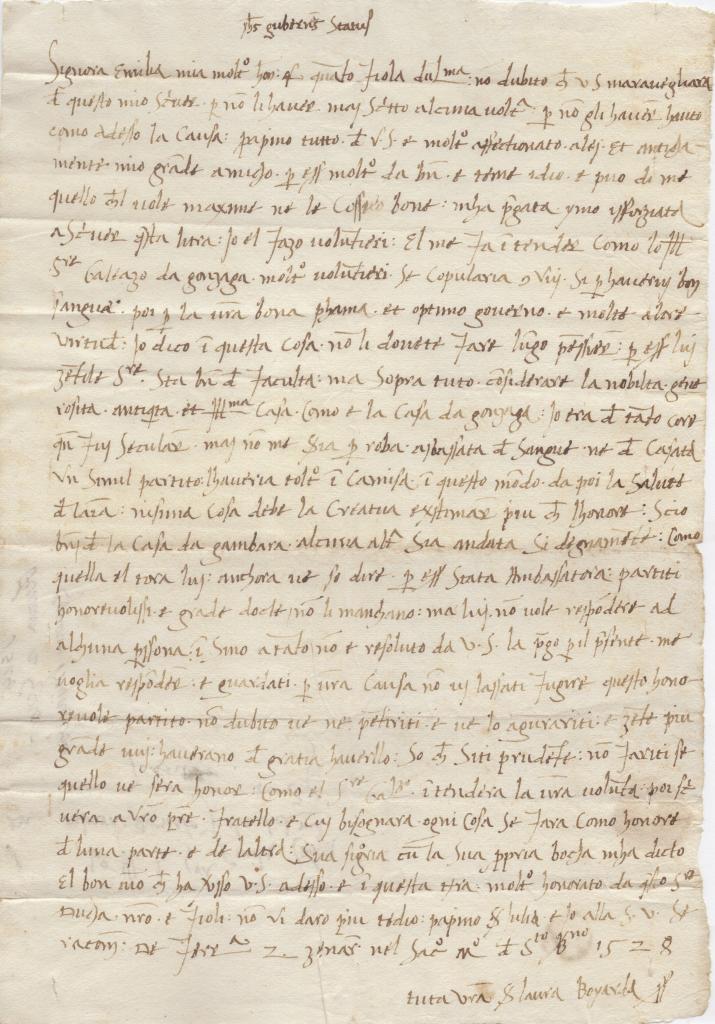 Jhs gubernet Status
Signora Emilia mia molto hon: et quanto fiola dulma: no dubito ch V S maravegliara
d questo mio Scriver. p no li haver may Scritto alcuna volta. p no gli haver hauto
como adesso la Causa: papino tutto. d V. S. e molto affectionato. alei. Et antiqua
mente mio grade amicho. p ess molto da bn. e teme idio. e puo di me
quello chl vole maxime ne le Cosse bone: mha pgata ymo isforziata
a Scriver qsta litra: Jo el fazo voluntieri: El me fa itender Como lo Ill
Sre Galeazo da gonzaga. molto voluntieri. Se Copularia vij. Si p haverij bon
sangue. poi p la vra bona phama. et optimo governo. e molte altre
virtud: Jo dico i questa Cosa. no li dovete fare lugo pesier: p ess luj
zetile Sre. Sta bn d faculta: ma Sopra tuto. cosiderare la nobilta. gene
rosita. antiqta. et Illma Casa. Como e la Casa da gonzaga: Jo tra d tato core
qn fuj Secular. may no me Sia p roba. abassata d Sangue. ne d Casata
Un Simil partito. lhaveria tolto i Camisa. i questo modo. da poi la Salute
d laia: nissuna Cosa debe la Creatua extimar piu ch lhonore: Scio
bn d la Casa da gambara. alcuna alt Sia andata Si degnamete: Como
quella el tora luj: anchora ve so dire. p ess Stata Ambassatora: partiti
honorevolissi. e grade docte no li manchano: ma luj. no vole respodere ad
alchuna pssona. i Sino a tato no e resoluto da V. S. la pgo p il psente. me
voglia respoder. e guardati. p vra Causa no vi lassati fugire questo hono
revole partito. no dubito ve ne petiriti. e ve lo agurariti. e zete piu
grade vuj: haverano d gratia haverllo: So ch Siti prudete: no fariti se
quello ve sera honor: Como el Sre Galzo. itendera la vra volunta: poi Sc
vera a vro pre. fratello. e Cuj bisognara. ogni cosa Se fara Como honore
d luna parte. e de laltra: Sua sigria cu la Sua ppria bocha mha dicto
El bon aio ch ha Vsso V. S. adesso. e i questa tra: molto honorato da qsto Sre
Ducha nro. e fioli: no Vi daro piu tedio: papino & lulia. e Jo alla S. V. Se
racom: De ferra. 2. zenar. nel Sac Mo. d Sto Bno 1528
tuta vra S laura Boyarda